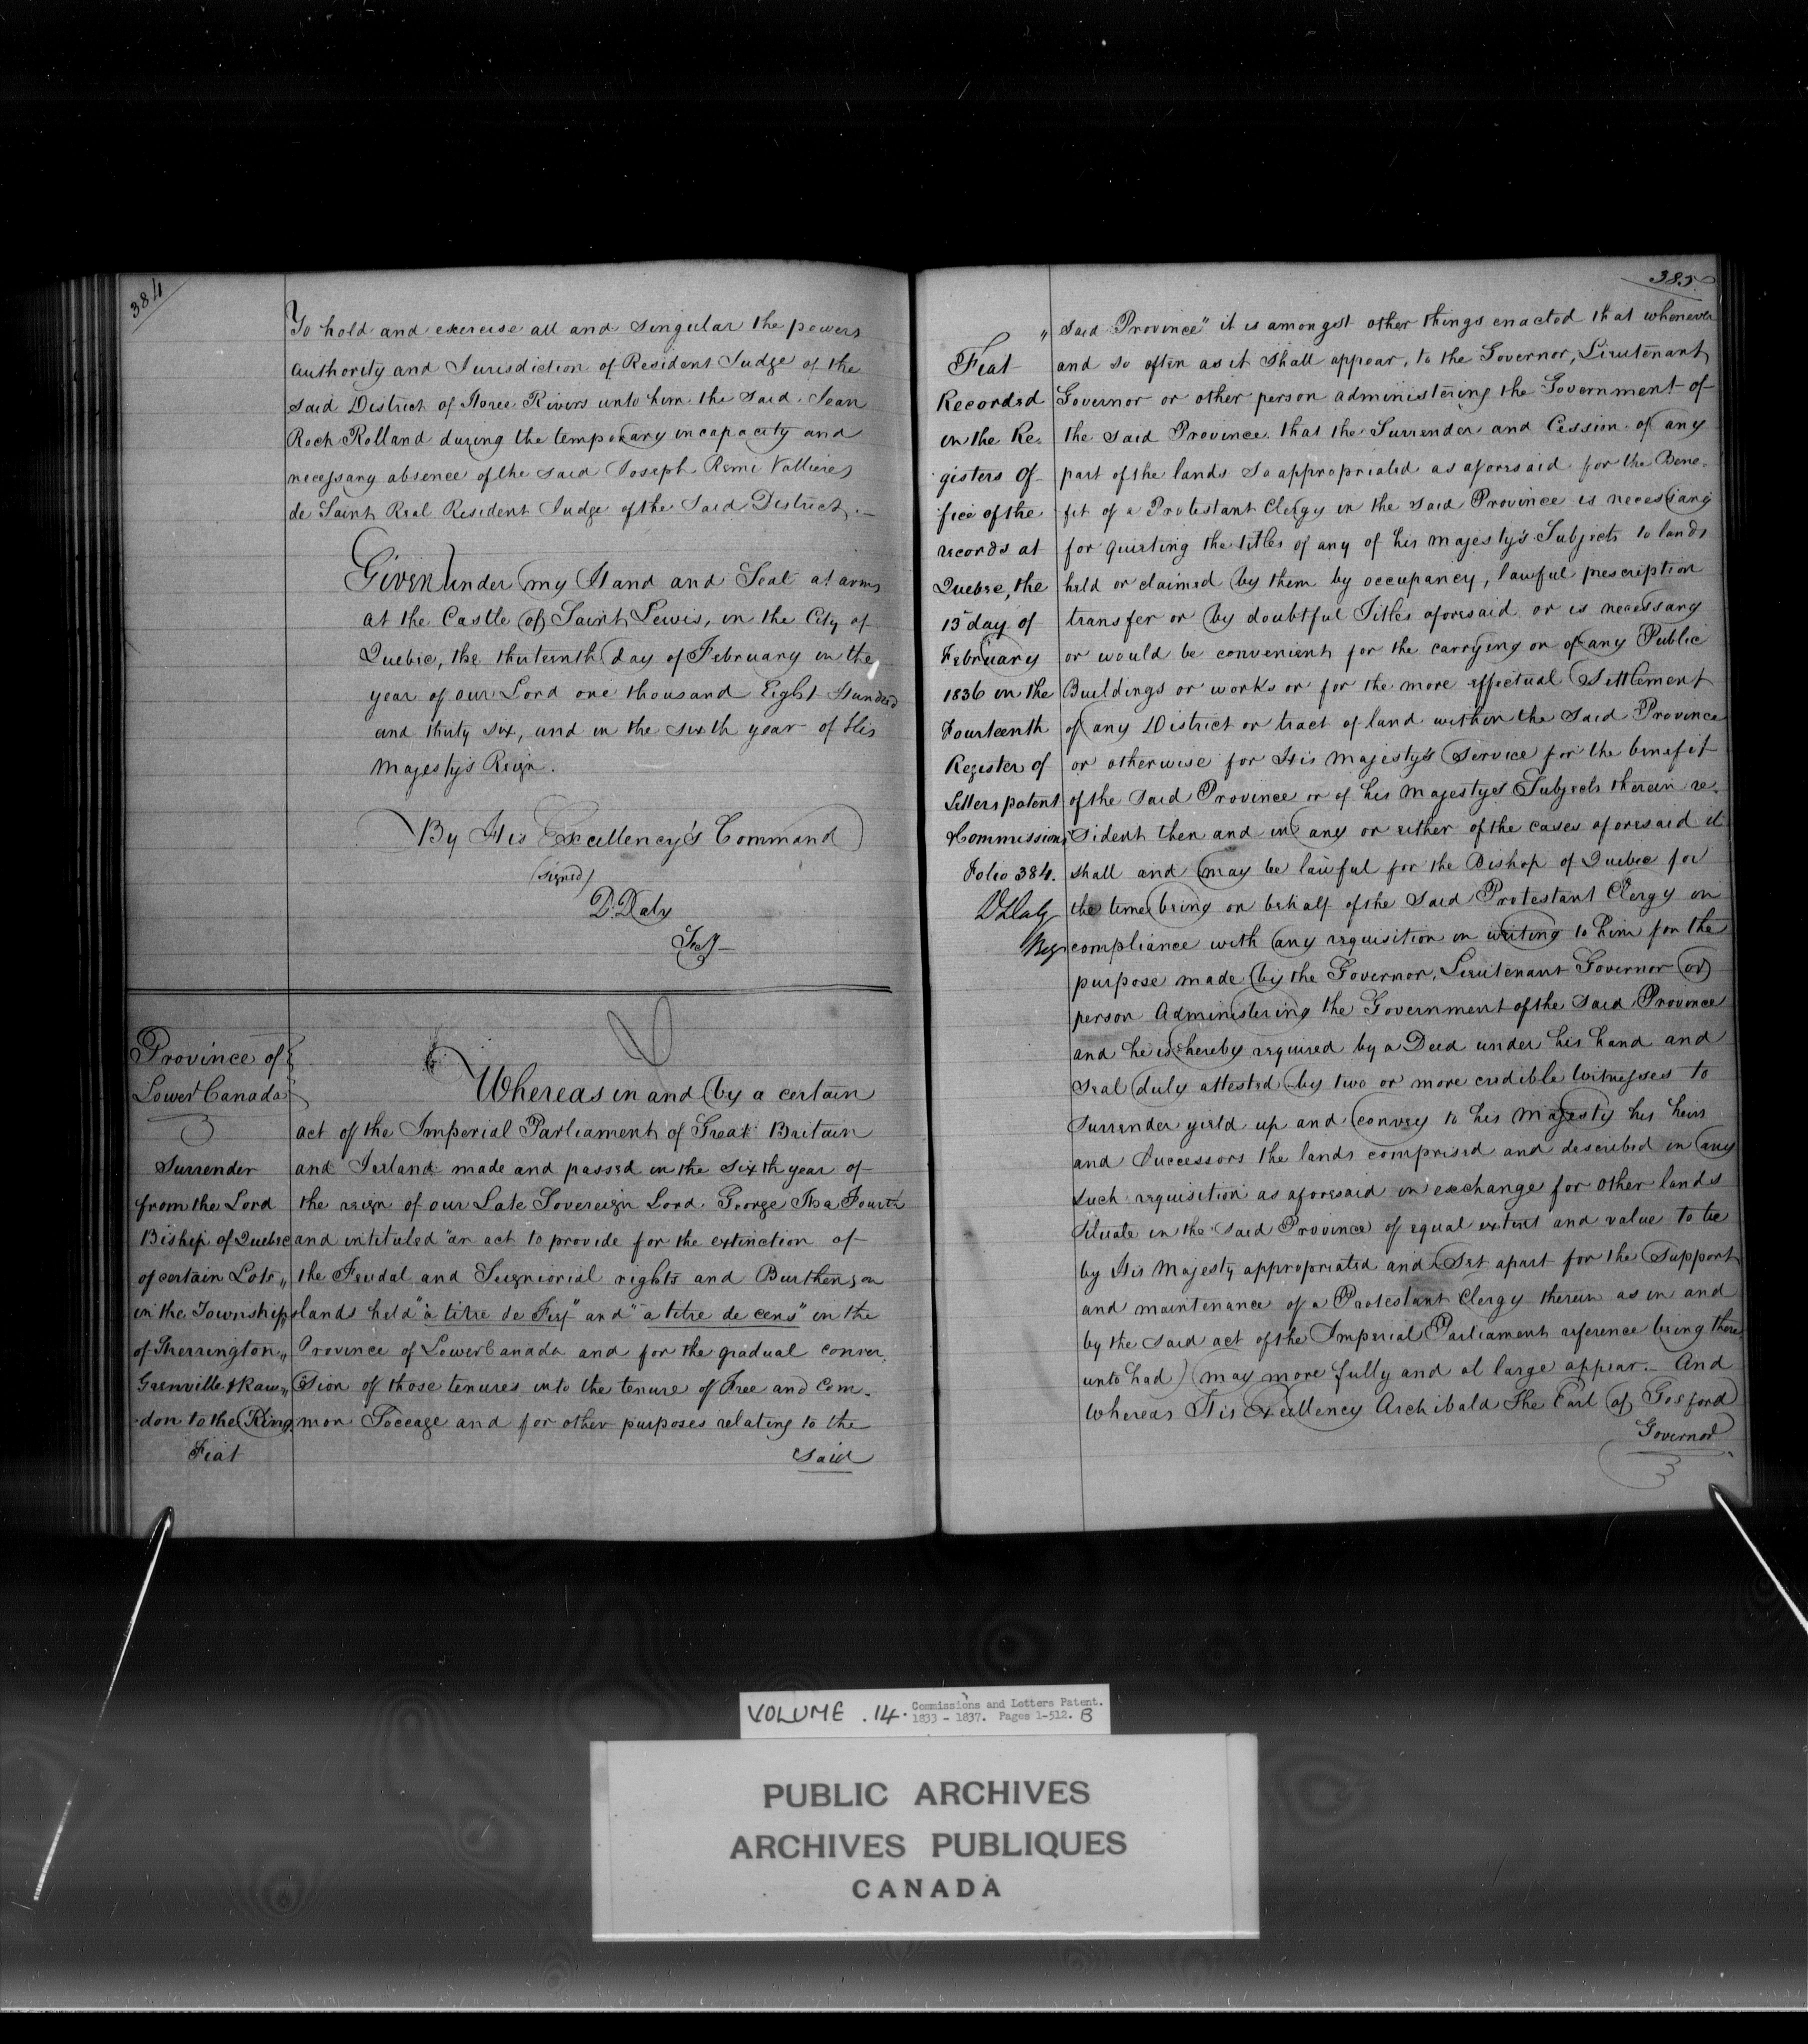 384
To hold and exercise all and singular the powers
Authority and Jurisdiction of Resident Judge of the
said District of Three Rivers unto him the said Jean
Roch Rolland during the temporary incapacity and
necessary absence of the said Joseph Remi Vallieres
de Saint Real Resident Judge of the said District.—
Given under my Hand and Seal at arms
at the Castle of Saint Lewis, in the City of
Quebec, the thirteenth day of February in the
year of our Lord one thousand Eight Hundred
and thirty six, and in the sixth year of His
Majesty's Reign.
By His Excellency's Command
(signed)
D. Daly
Secy
Province of
Lower Canada
Surrender
from the Lord
Biship of Quebec
of certain Lots „
in the Townships
of Therrington „
Grenville & Raw „
don to the King.
Fiat
Whereas in and by a certain
act of the Imperial Parliament of Great Britain
and Ireland made and passed in the sixth year of
the reign of our Late Sovereign Lord George The Fourth
and intituled "an act to provide for the extinction of
the Feudal and Seigniorial rights and Burthens on
lands held "à titre de Fief" and "a titre de cens" in the
Province of Lower Canada and for the gradual conver,
sion of those tenures into the tenure of Free and Com-
mon Soccage and for other purposes relating to the
said
385
Fiat
Recorded
in the Re-
gisters Of-
fice of the
records at
Quebec, the
15 day of
February
1836 in the
Fourteenth
Register of
Letters patent
& Commissions
Folio 384.
D Daly
Regr
" said Province" it is amongst other things enacted that whenever
and so often as it shall appear, to the Governor, Lieutenant
Governor or other person administering the Government of
the said Province that the Surrender and Cession of any
part of the lands so appropriated as aforesaid for the Bene-
fit of a Protestant Clergy in the said Province is necessary
for quieting the titles of any of his Majesty's Subjects to lands
held or claimed by them by occupancy, lawful prescription
transfer or by doubtful Titles aforesaid or is necessary
or would be convenient for the carrying on of any Public
Buildings or works or for the more effectual Settlement
of any District or tract of land within the said Province
or otherwise for His Majesty's Service for the benefit
of the said Province or of his Majestys Subjects therein re-
sident then and in any or either of the cases aforesaid it
shall and may be lawful for the Bishop of Quebec for
the time being on behalf of the said Protestant Clergy on
compliance with any requisition in writing to him for the
purpose made by the Governor, Lieutenant Governor or
person Administering the Government of the said Province
and he is hereby required by a Deed under his hand and
Seal duly attested by two or more credible Witnesses to
Surrender yield up and convey to his Majesty his heirs
and Successors the lands comprised and described in any
such requisition as aforesaid in exchange for other lands
situate in the said Province of equal extent and value to be
by His Majesty appropriated and Set apart for the Support
and maintenance of a Protestant Clergy therein as in and
by the said act of the Imperial Parliament reference being there
unto had) may more fully and at large appear.— And
Whereas His Excellency Archibald The Earl of Gosford
Governor
VOLUME . 14. Commissions and Letters Patent.
1833 - 1837. Pages 1-512. B
PUBLIC ARCHIVES
ARCHIVES PUBLIQUES
CANADA